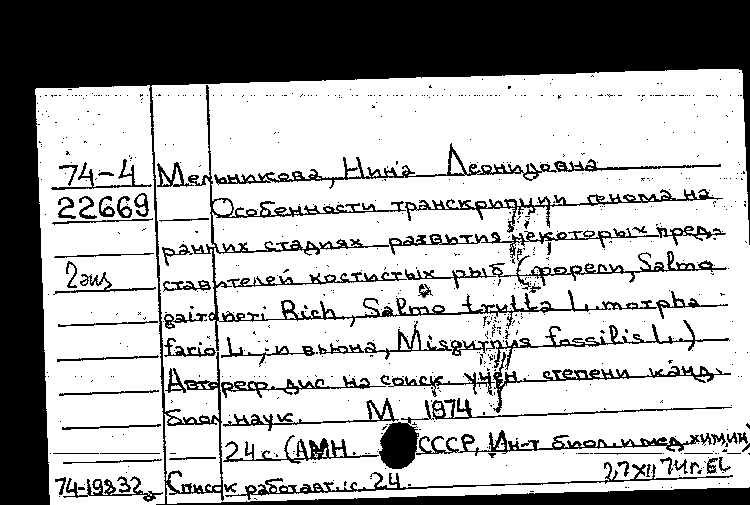 74-4 Мельникова, Нина Леонидовна
22669 Особенности транскрипции генома на
ранних стадиях развития некоторых пред-
2 экз ставителей костистых рыб (форели, Salmo
gairdneri Rich., Salmo trutta L. morpha
fario L., и вьюна, Misgurnus fossilis L.)
Автореф. дис. на соиск. учен. степени канд.
биол. наук. М., 1974.
24 с. (АМН. СССР, Ин-т биол. и мед. химии)
74-19832 Список работ авт.: с. 24.
27 XII 74 г.